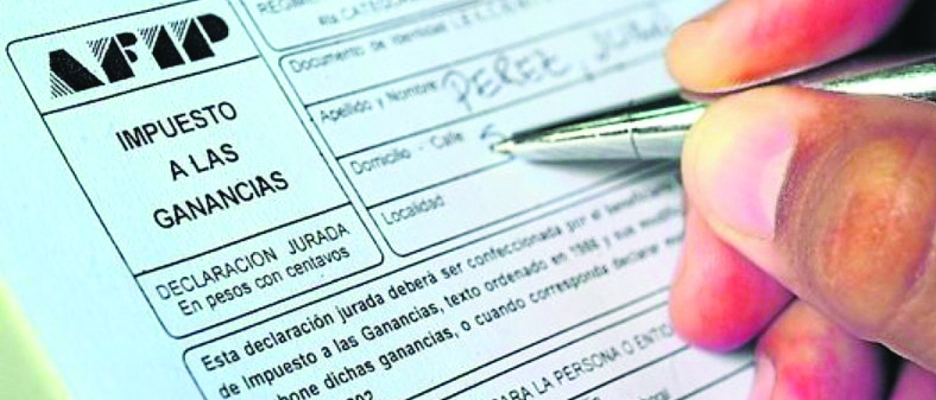 AFIP
IMPUESTO
A LAS
GANANCIAS
DECLARACION JURADA
En pesos con centavos
4ta CATEGORIA
Documento de Identidad
Apellido y Nombre PEREZ,
Domicilio - Calle S
Localidad
Esta declaración jurada deberá ser confeccionada por el beneficiario
de Impuesto a las Ganancias, texto ordenado en 1986 y sus
dichas ganancias, o cuando corresponda declarar
LA PERSONA O